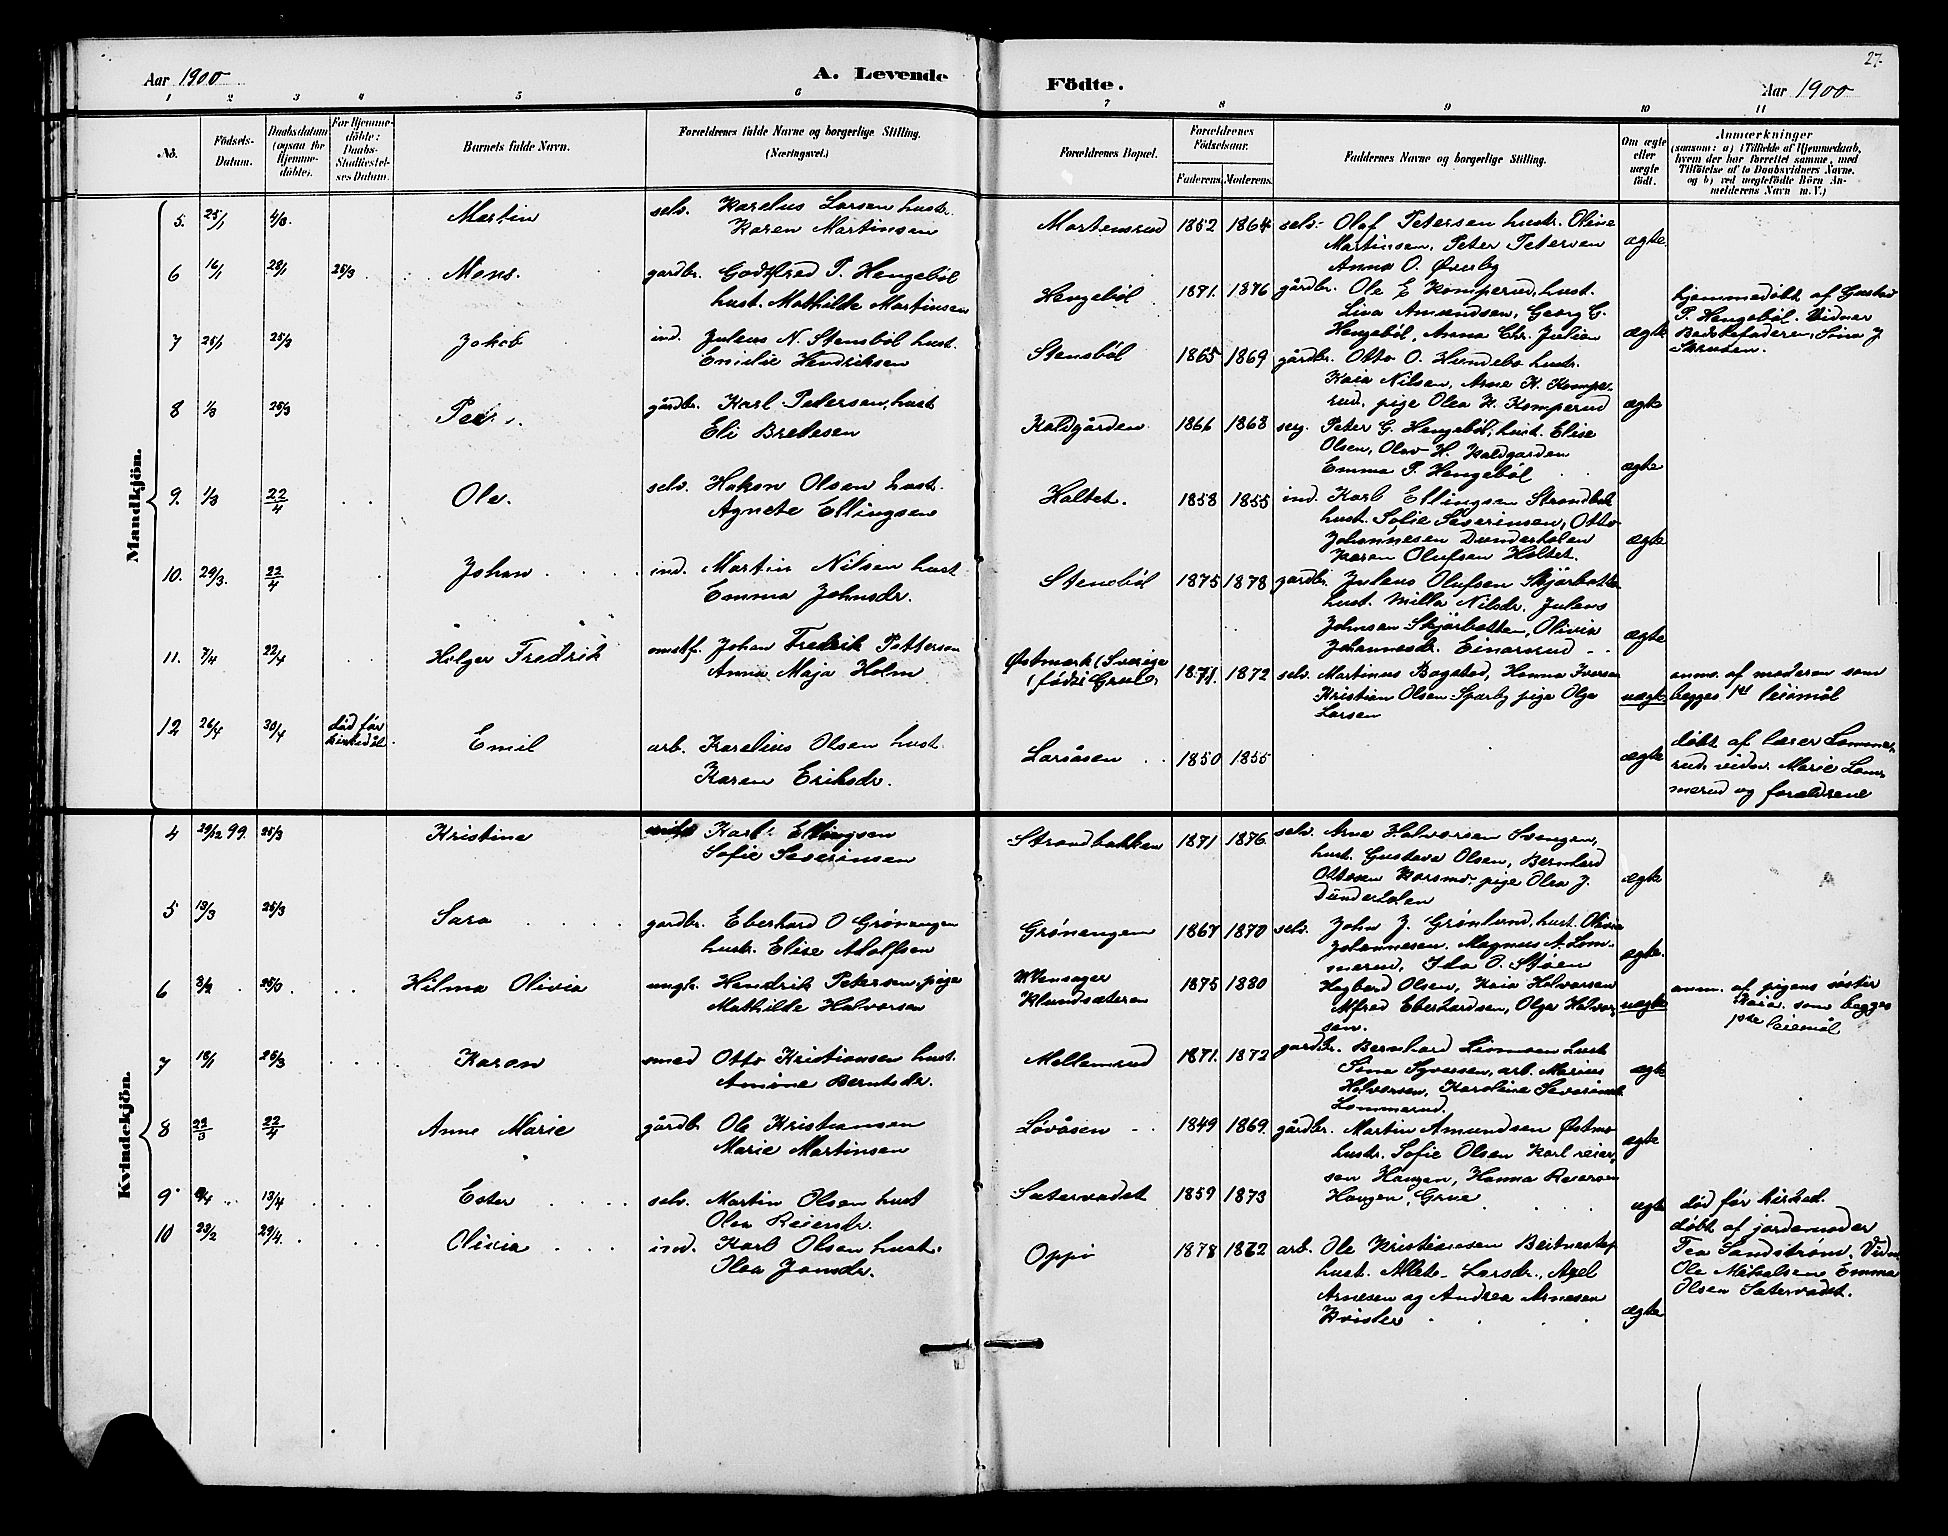 27.
Aar 1900
A. Levende
Födte.
Aar 1900
1 2 3 4 5 6 7 8 9 10 11
No.
Födsels-
Datum.
Daabsdatum
(ogsaa for
Hjemme-
döbte).
For Hjemme-
döbte:
Daabs-
Stadfæstel-
ses Datum.
Barnets fulde Navn.
Forældrenes fulde Navne og borgerlige Stilling.
(Næringsvei.)
Forældrenes Bopæl.
Forældrenes
Födselsaar.
Faderens. Moderens.
Faddernes Navne og borgerlige Stilling.
Om ægte
eller
uægte
födt.
Anmærkninger
(saasom: a) i Tilfælde af Hjemmedaab,
hvem der har forrettet samme, med
Tilföielse af to Daabsvidners Navne.
og b) ved uægtefödte Börn An-
melderens Navn m. V.)
Mandkjön.
5. 25/1 4/3. Martin
selv. Karelius Larsen hustr.
Karen Martinsen
Mortensrud 1852 1864
selv. Olaf Petersen hustr. Oline
Martinsen, Peter Petersen
Anna O. Øverby
ægte
6 16/1 28/1 25/3 Mons.
gardbr. Godtfred P. Hengebøl
hust. Mathilde Martinsen
Hengebøl 1871. 1876
gårdbr. Ole E Komperud, hust.
Lina Amundsen, Georg C.
Hengebøl, Anna Chr. Julien
ægte
hjemmedøbt af Gustav
P. Hengebøl. Vidner
Bedstefaderen, Sina J.
7 25/1 25/3 Jakob
ind. Julius N. Stensbøl hust.
Emilie Hendriksen
Stensbøl 1865 1869
gårdbr. Otto O. Hundebo hustr.
Kaia Nilsen, Arne K. Kompe-
rud, pige Olea K. Komperud
ægte
8 1/3 25/3
gårdbr. Karl Petersen, hust
Eli Bredesen
Kaldgården 1866 1868
Peter G. Hengebøl, hust. Elise
Olsen, Olav H. Kaldgarden
Emma P. Hengebøl
ægte
9. 1/3 22/4 Ole.
selv. Hakon Olsen hust.
Agnete Ellingsen
Holtet. 1858 1855
ind. Karl Ellingsen Strandbak
hust. Sofie Severinsen, Otto
Johannesen Dunderholen
Karen Olufsen Holtet.
ægte
10. 29/3. 22/4 Johan
ind. Martin Nilsen hust
Emma Johnsdr.
Stensbøl 1875 1878
gardbr. Julius Olufsen Skjørbotten
hust. Milla Nilsdr. Julius
Johnsen Skjørbotten, Olivia
Johannesdr. Einarsrud
ægte
11. 7/4 22/4 Holger Fredrik
omstf. Johan Fredrik Petterson
Anna Maja Holm
Østmark (Sverige
(fødsl Grue) 1871. 1872
selv. Martinus Bogstad, Hanna Iversen
Kristian Olsen Sparby pige Olga
Larsen
uægte
anm. af moderen som
begges 1ste leiemål
12 26/4 30/4 død før
kirkedåb. Emil
arb. Karelius Olsen hust.
Karen Eriksdr.
Larsåsen 1850 1855
ægte
døbt af lærer Lomme-
rud, vidner Marie Lom-
merud og forældrene
Kvindekjön.
4 29/12 99. 25/3 Kristine
Karl Ellingsen
Sofie Severinsen
Strandbakken 1871 1876
selv. Arne Halvorsen Svengen,
hust. Gustava Olsen, Bernhard
Ottesen Korsmo, pige Olea J.
Dunderholen
ægte
5 13/3 25/3 Sara
gardbr. Eberhard O Grønengen
hustr. Elise Adolfsen
Grønengen 1867 1870
selv. John J. Grønlund, hust. Olivia
Johannesen. Magnus A. Lom-
merud, Ida O. Støen
ægte.
6 3/2 25/3. Hilma Olivia
ungk. Hendrik Petersen, pige
Mathilde Halvorsen
N Vensager
Klundsæteren 1875 1880
Hagbard Olsen, Kaia Halvorsen
Alfred Eberhardsen, Olga Halvor-
sen.
uægte
anm. af pigens søster
Kaia. som begges
1ste leiemål
7 18/1 25/3 Karen
smed Otto Kristiansen hust.
Amine Berntsdr.
Mellemrud 1871. 1872
gardbr. Bernhard Simsen hust
Sina Syversen, arb. Marius
Halvorsen, Karoline Severinsd.
Lommerud.
ægte
8 22/3 22/4 Anne Marie
gårdb. Ole Kristiansen
Marie Martinsen
Løvåsen 1849 1869.
gårdbr. Martin Amundsen Østmo
hustr. Sofie Olsen Karl reier-
sen Haugen, Hanna Reiersen
Haugen, Grue
ægte
9 13/4 Ester
selv. Martin Olsen hust
Olea Reiersdr.
Sætervadet 1859 1873
ægte
død før kirked.
døbt af jordemoder
Tea Sandstrøm. Vidn.
Ole Mikalsen Emma
Olsen Sætervadet.
10 23/2 29/4. Olivia
ind. Karl Olsen hust.
Olea Jansdr.
Oppi 1878 1872
arb. Ole Kristiansen Beitnestap
hust. Allet Larsdr., Axel
Arnesen og Andrea Arnesen
Kvister
ægte